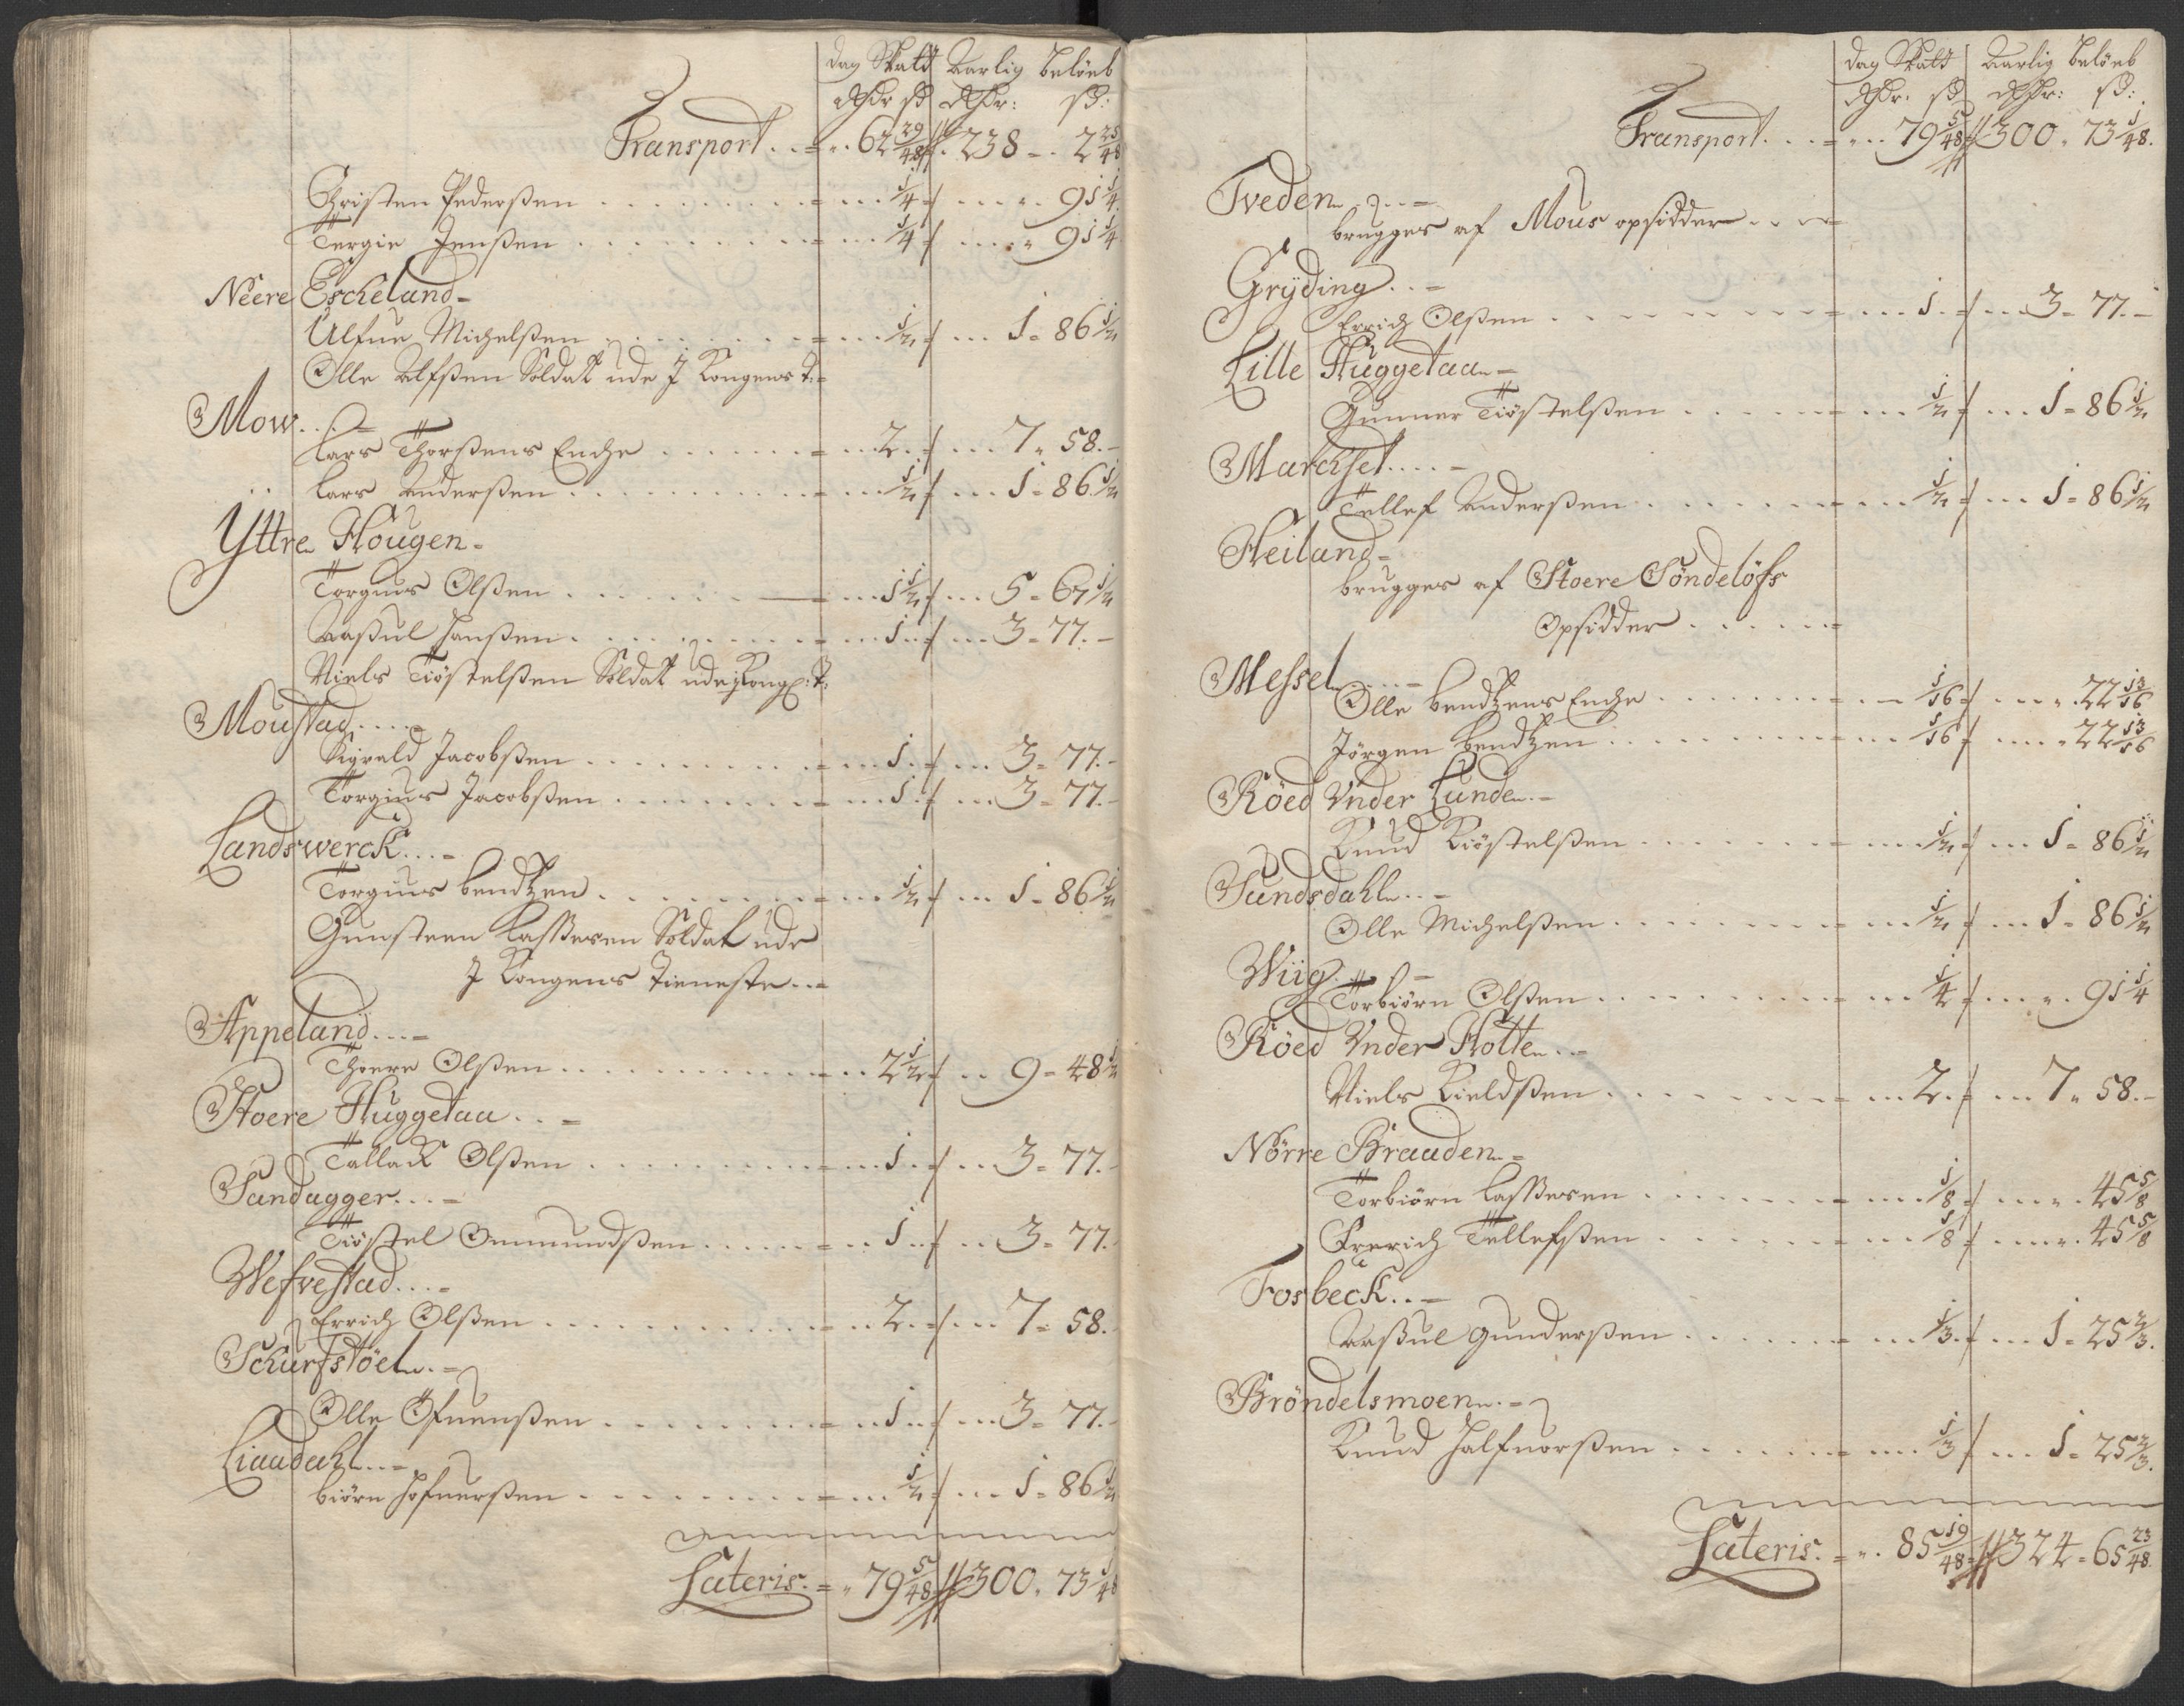 dag Skatt Aarlig beløeb
Rdr ß Rdr: ß:
Transport . . = „ . . 62 29/48 // . 238 - . 2 25/48
Christen Pederßen . . . . . . . . = . . . 1/4 . . . „ . 91 1/4
Tergie Jenßen . . . . . . . . = . . . 1/4 . . . „ 91 1/4
Neere Escheland -
Ulfue Michelßen . . . . . . . = . . . 1/2 . . . 1 = 86 1/2
Olle Ulfßen Soldat ude J Kongens T: =
Mow . . . =
Lars Thorßens Enche . . . . . . = . . 2 . . . . 7 „ 58. -
Lars Anderßen . . . . . . . . = . . . 1/2 . . . 1 = 86 1/2
Yttre Hougen -
Torgius Olßen . . . . . . . = . . . 1 1/2 . . . 5 = 67 1/2
Aaßul Hanßen . . . . . . . . = . . . 1 . . . . 3 = 77. -
Niels Tiøstelßen Soldat ude J Kong: T:
Moustad . . . .
Sigvald Jacobßen . . . . . . . . = . . . 1 . . . . 3 = 77. -
Torgius Jacobßen . . . . . . . = . . . 1 . . . . 3 = 77. -
Landswerck . . . -
Torgius bendtzen . . . . . . . = . . . 1/2 . . . 1 = 86 1/2
Gunsteen Laßesen Soldat ude
J Kongens Tieneste . . =
Appeland . . . -
Thoere Olßen . . . . . . . . . = . . 2 1/2 . . 9 = 48 1/2
Stoere Huggetaa . . =
Tallack Olßen . . . . . . . . = . . . 1 . . . 3 = 77. -
Sandagger . . . -
Tiøstel Ommundßen . . . . . = . . 1 . . . 3 = 77. -
Wefvestad . . . -
Errich Olßen . . . . . . . . . = . . 2 . . . . 7 = 58. -
Schurfstöel . . =
Olle Ofvenßen . . . . . . . = . . 1 . . . . 3 = 77. -
Liaadahl . . -
biørn Hofverßen . . . . . . . . = . . . 1/2 . . . 1 = 86 1/2
Lateris. = „ 79 5/48 // 300 „ 73 1/48
dag Skatt Aarlig beløeb
Rdr. ß Rdr: ß:
Transport. . . = „ . . 79 5/48 // 300 „ 73 1/48.
Tveden . . . =
brugges af Mous opsidder . . =
Gryding . . =
Errich Olßen . . . . . . . . = . . . 1 . . . . 3 = 77. -
Lille Huggetaa =
Gunner Tiøstelßen . . . . . = . . . 1/2 . . . 1 = 86 1/2
Marchset . . . . -
Tellef Anderßen . . . . . . = . . . 1/2 . . . 1 = 86 1/2
Heiland -
brugges af Stoere Søndeløfs
Opsidder . . . . . =
Messel . . . . -
Olle bendtzens Enche . . . . . . = . . 1/16 . . . „ . 22 13/16
Jørgen bendtzen . . . . . . . . = . . 1/16 . . . . „ 22 13/16
Röed Vnder Lunde . -
Knud Kiøstelßen . . . . . . . = . . . 1/2 . . . 1 = 86 1/2
Sundsdahl . . -
Olle Michelßen . . . . . . . = . . . 1/2 . . . 1 = 86 1/2
Wiig . . . =
Torbiørn Olßen . . . . . . . . = . . . 1/4 . . . „ . 91 1/4
Röed Vnder Holte . . =
Niels Kieldßen . . . . . . . . = . . . 2 . . . . 7 „ 58. -
Nörre Braaden =
Torbiørn Laßesen . . . . . . . = . . . 1/8 . . . „ . 45 5/8
Frerich Tellefßen . . . . . . = . . . 1/8 . . . . „ . 45 5/8
Fosbeck . . -
Aaßul Gunderßen . . . . . . = . . . 1/3 . . . 1 = 25 2/3.
Bröndelsmoen . =
Knud Halfvorßen . . . . . . = . . . 1/3 . . . 1 = 25 2/3.
Lateris. = „ . 85 19/48 // 324 = 65 23/48